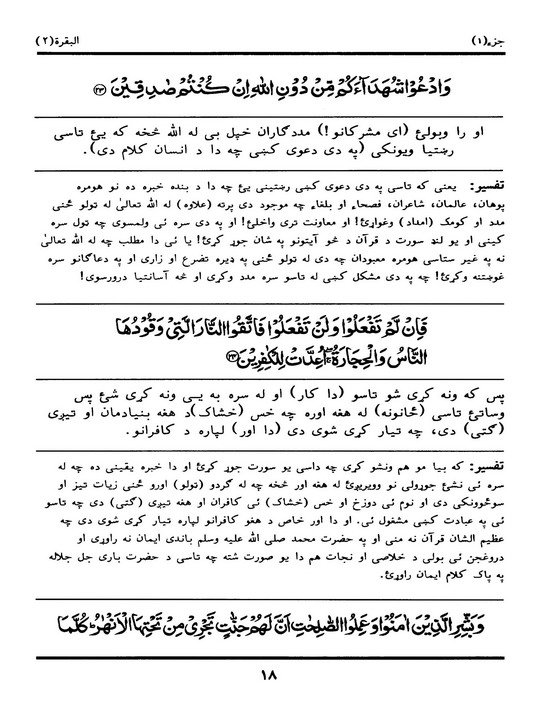 جزء(١) البقرة(٢)
وَادْعُوْا شُهَدَآءَكُمْ مِّنْ دُوْنِ اللّٰهِ اِنْ كُنْتُمْ صٰدِقِيْنَ ﴿٢٣﴾
او را وبولئ (ای مشرکانو!) مددگاران خپل بی له الله څخه که یئ تاسی
رښتیا ویونکی (په دی دعوی کښی چه دا د انسان کلام دی).
تفسیر: یعنی که تاسی په دی دعوی کښی رښتینی یئ چه دا د بنده خبره ده نو هومره
پوهان، عالمان، شاعران، فصحاء او بلغاء چه موجود دی پرته (علاوه) له الله تعالیٰ له تولو څنی
مدد او کومک (امداد) وغواړئ! او معاونت تری واخلئ! او په دی سره ئی ولمسوی چه تول سره
کینی او یو لنډ سورت د قرآن د څو آیتونو په شان جوړ کړئ! یا ئی دا مطلب چه له الله تعالیٰ
نه په غیر ستاسی هومره معبودان چه دی له تولو څنی په ډیره تضرع او زاری او په دعاگانو سره
غوښتنه وکړئ! چه په دی مشکل کښی له تاسو سره مدد وکړی او څه آسانتیا دررسوی!
فَاِنْ لَّمْ تَفْعَلُوْا وَلَنْ تَفْعَلُوْا فَاتَّقُوا النَّارَ الَّتِيْ وَقُوْدُهَا
النَّاسُ وَالْحِجَارَةُ ۖ اُعِدَّتْ لِلْكٰفِرِيْنَ ﴿٢٤﴾
پس که ونه کړی شو تاسو (دا کار) او له سره به یی ونه کړی شئ پس
وساتئ تاسی (ځانونه) له هغه اوره چه خس (خشاک)د هغه بنیادمان او تیږی
(گتی) دی، چه تیار کړی شوی دی (دا اور) لپاره د کافرانو.
تفسیر: که بیا مو هم ونشو کړی چه داسی یو سورت جوړ کړئ او دا خبره یقینی ده چه له
سره ئی نشئ جوړولی نو وویریږئ له هغه اور څخه چه له گردو (تولو) اورو څنی زیات تیز او
سوځوونکی دی او نوم ئی دوزخ او خس (خشاک) ئی کافران او هغه تیږی (گتی) دی چه تاسو
ئی په عبادت کښی مشغول ئی. او دا اور خاص د هغو کافرانو لپاره تیار کړی شوی دی چه
عظیم الشان قرآن نه منی او په حضرت محمد صلی الله علیه وسلم باندی ایمان نه راوړی او
دروغجن ئی بولی د خلاصی او نجات هم دا یو صورت شته چه تاسی د حضرت باری جل جلاله
په پاک کلام ایمان راوړئ.
وَبَشِّرِ الَّذِيْنَ اٰمَنُوْا وَعَمِلُوا الصّٰلِحٰتِ اَنَّ لَهُمْ جَنّٰتٍ تَجْرِيْ مِنْ تَحْتِهَا الْاَنْهٰرُ ۖ كُلَّمَا
١٨